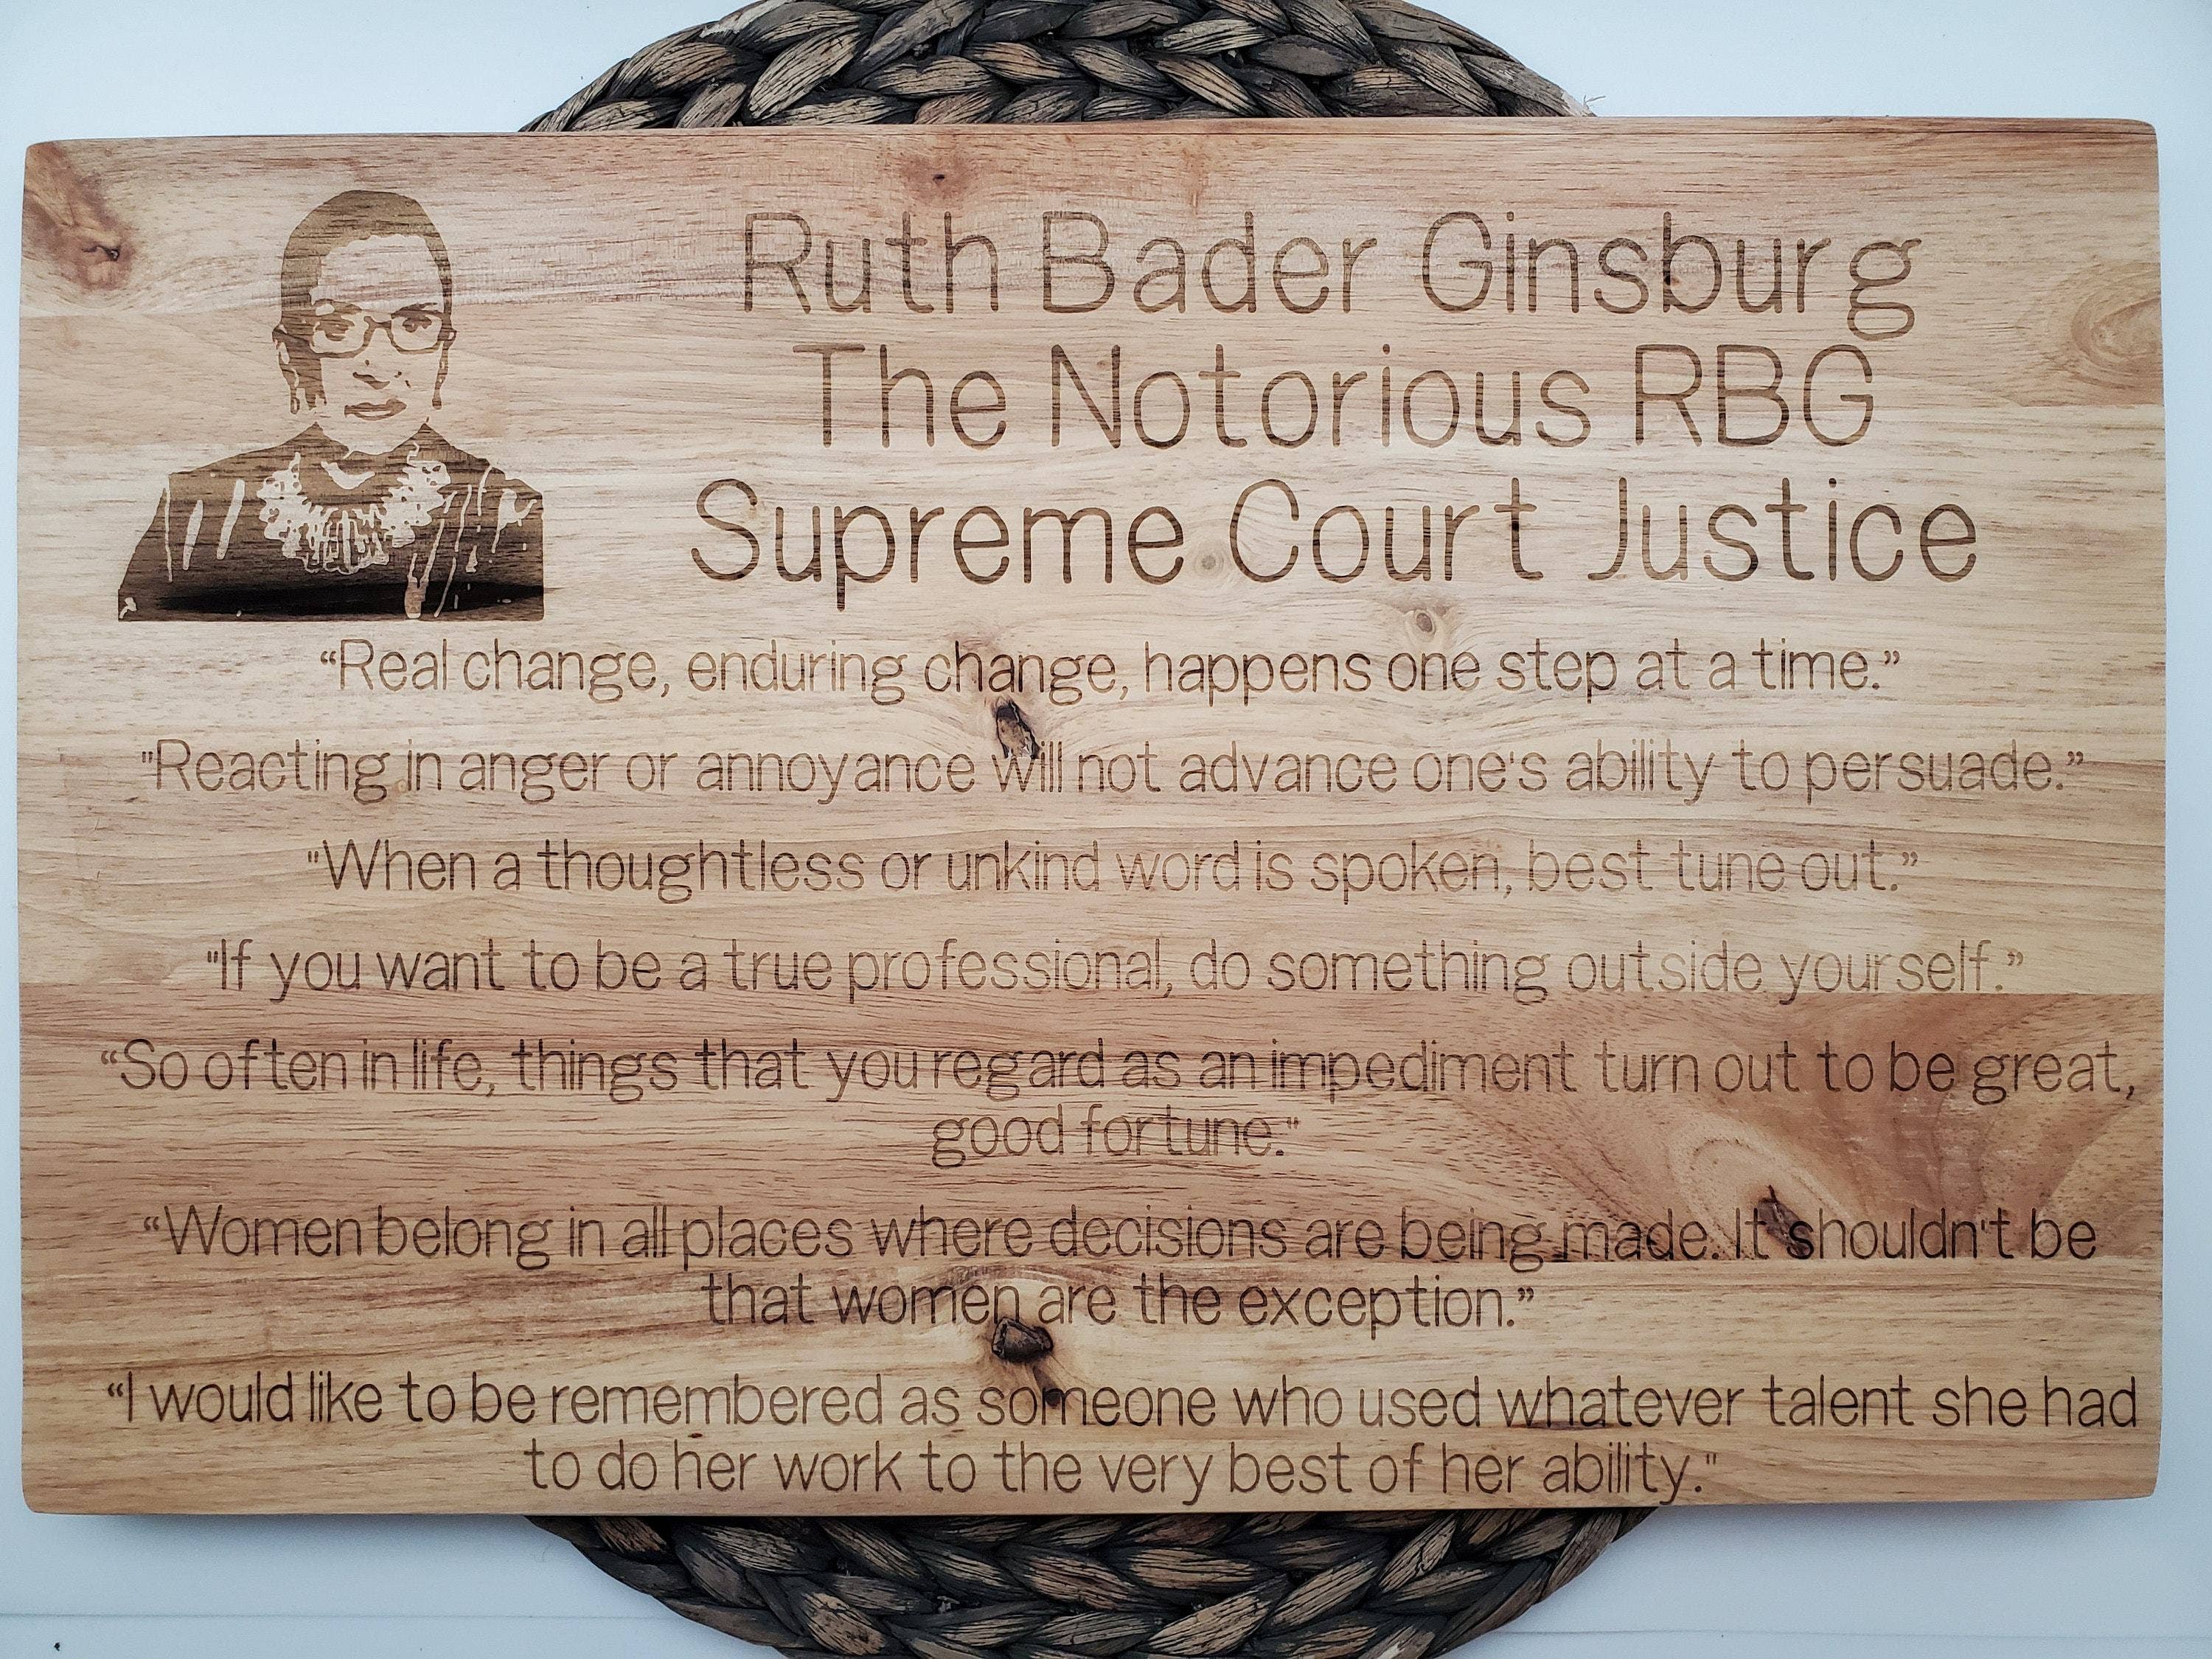 Ruth Bader Ginsburg
The Notorious RBG
Supreme Court Justice
“Real change, enduring change, happens one step at a time.”
"Reacting in anger or annoyance will not advance one's ability to persuade.”
"When a thoughtless or unkind word is spoken, best tune out.”
"If you want to be a true professional, do something outside yourself.”
“So often in life, things that you regard as an impediment turn out to be great,
good fortune."
“Women belong in all places where decisions are being made. It shouldn't be
that women are the exception.”
“I would like to be remembered as someone who used whatever talent she had
to do her work to the very best of her ability."